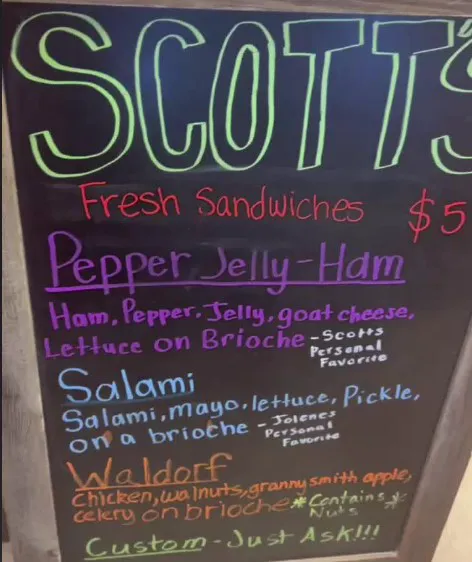 SCOTT'S
Fresh Sandwiches $5
Pepper Jelly-Ham
Ham, Pepper. Jelly, goat cheese,
Lettuce on Brioche - Scotts
Personal
Favorite
Salami
Salami, mayo, lettuce, Pickle,
on a brioche - Jolenes
Personal
Favorite
Waldorf
Chicken, walnuts, granny smith apple,
celery on brioche *Contains*
Nuts
Custom - Just Ask!!!